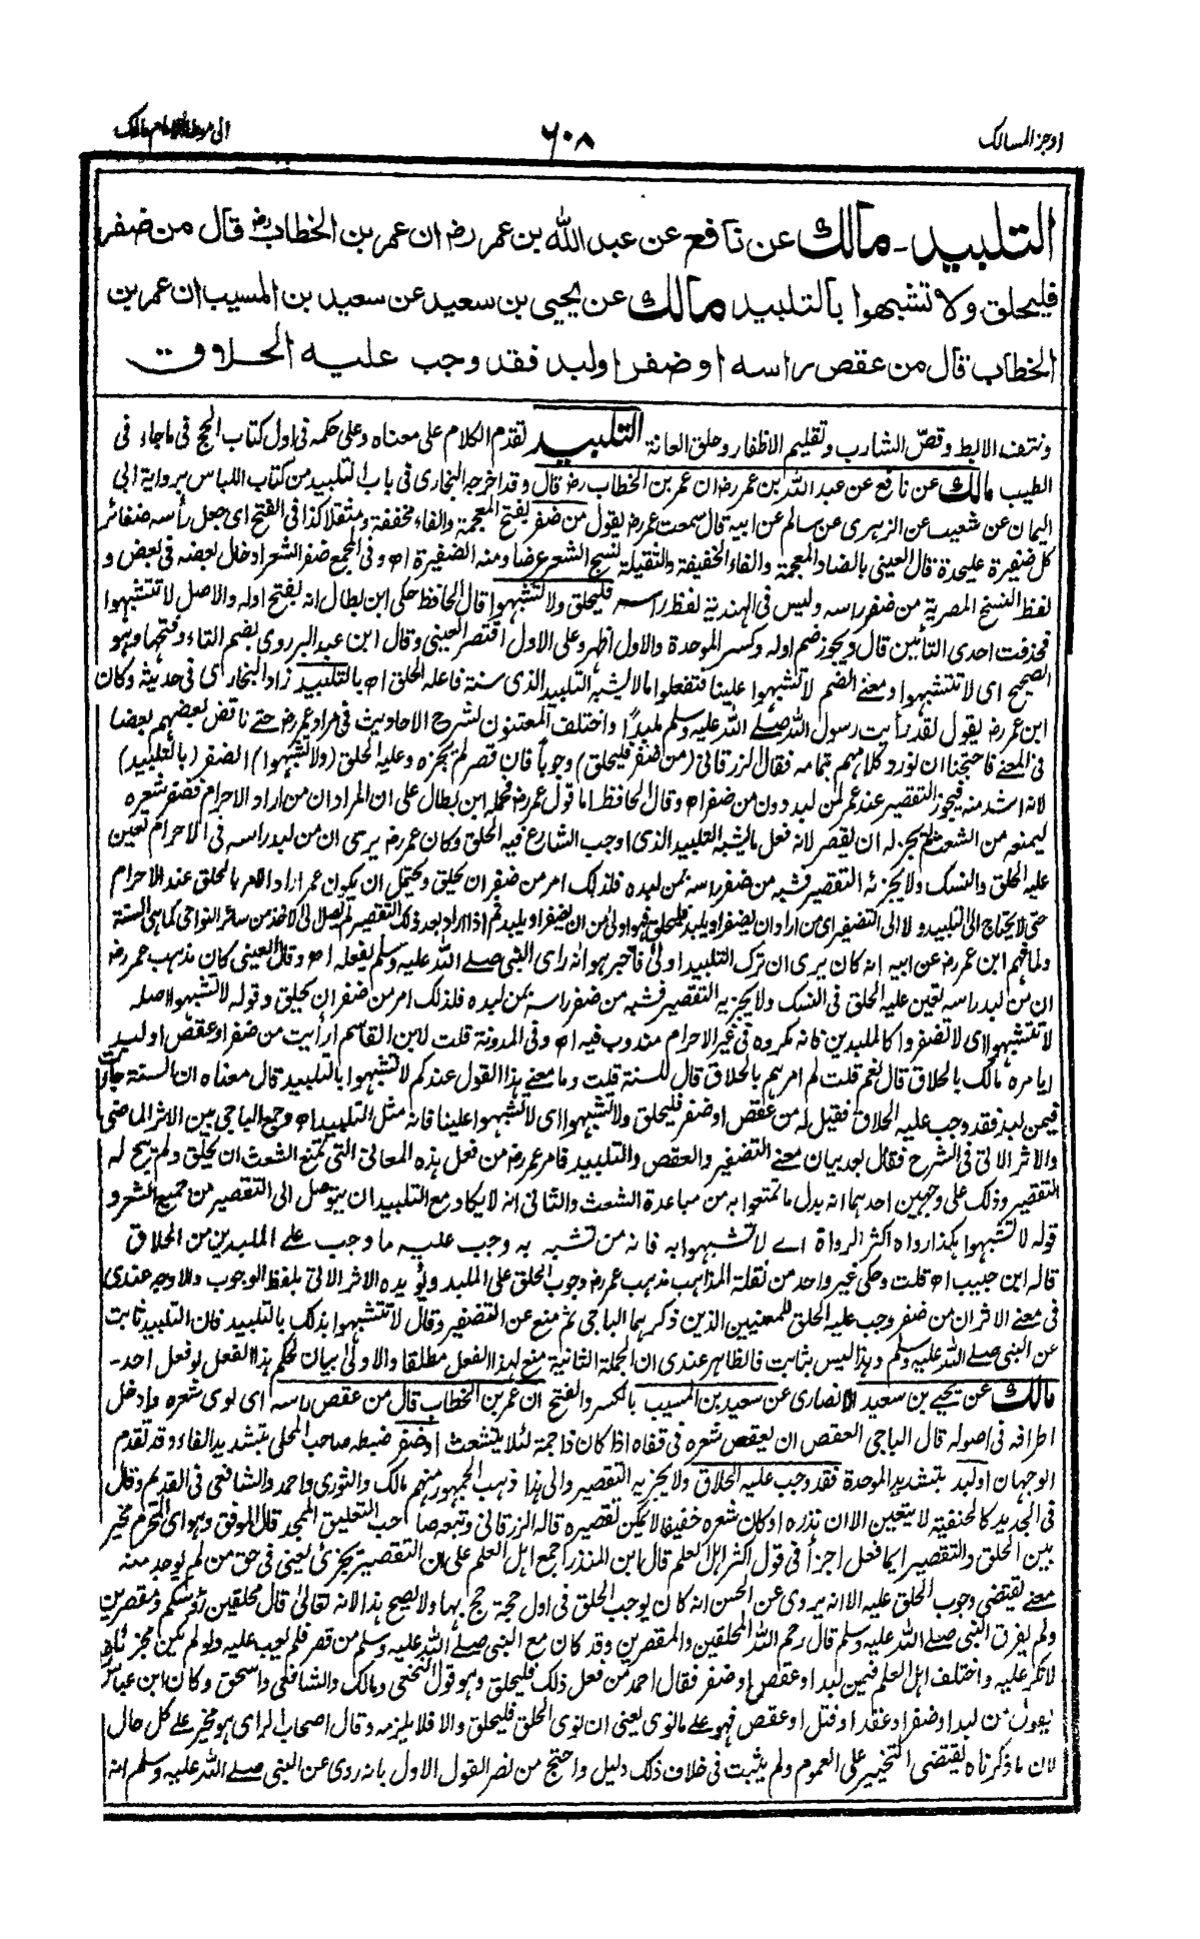 اوجز المسالك
٦٠٨
الى موطا الامام مالك
التلبيد ـ مالك عن نافع عن عبد الله بن عمر رض ان عمر بن الخطاب رض قال من ضفر
فليحلق ولا تشبهوا بالتلبيد مالك عن يحيى بن سعيد عن سعيد بن المسيب ان عمر بن
الخطاب قال من عقص راسه او ضفر او لبد فقد وجب عليه الحلاق
ونتف الابط وقص الشارب وتقليم الاظفار وحلق العانة التلبيد تقدم الكلام على معناه وعلى حكمه فى اول كتاب الحج فى ماجاء فى
الطيب مالك عن نافع عن عبد الله بن عمر رض ان عمر بن الخطاب رض قال وقد اخرجه البخارى فى باب التلبيد من كتاب اللباس برواية ابى
اليمان عن شعيب عن الزهرى عن سالم عن ابيه قال سمعت عمر رض يقول من ضفر بفتح المعجمة والفاء مخففة ومثقلا كذا فى الفتح اى جعل رأسه ضفائر
كل ضفيرة عليحدة قال العينى بالضاد المعجمة والفاء الخفيفة والثقيلة نسج الشعر عرضا ومنه الضفيرة اه وفى المجمع ضفر الشعر ادخال بعضه فى بعض و
لفظ النسخ المصرية من ضفر راسه وليس فى الهندية لفظ راسه فليحلق ولا تشبهوا قال الحافظ حكى ابن بطال انه بفتح اوله والاصل لا تتشبهوا
فحذفت احدى التائين قال ويجوز ضم اوله وكسر الموحدة والاول اظهر وعلى الاول اقتصر العينى وقال ابن عبد البر روى بضم التاء وفتحها وهو
الصحيح اى لا تتشبهوا ومعنے الضم لا تشبهوا علينا فتفعلوا مالا يشبه التلبيد الذى سنة فاعله الحلق اه بالتلبيد زاد البخارى فى حديثه وكان
ابن عمر رض يقول لقد رأيت رسول الله صلے الله عليه وسلم ملبدا واختلف المعتنون لشرح الاحاديث فى مراد عمر رض حتے ناقض بعضهم بعضا
فى المعنے فاحتجنا ان نورد كلامهم بتمامه فقال الزرقانى (من ضفر فليحلق) وجوبا فان قصر لم يجزه وعليه الحلق (ولا تشبهوا) الضفر (بالتلبيد)
لانه اشد منه فيجوز التقصير عند عمر لمن لبد دون من ضفر اه وقال الحافظ اما قول عمر رض فحمله ابن بطال على ان المراد ان من اراد الاحرام فضفر شعره
ليمنعه من الشعث لم يجز له ان يقصر لانه فعل ما يشبه التلبيد الذى اوجب الشارع فيه الحلق وكان عمر رض يرى ان من لبد راسه فى الاحرام تعين
عليه الحلق والنسك ولا يجزئه التقصير فشبه من ضفر راسه بمن لبده فلذلك امر من ضفر ان يحلق ويحتمل ان يكون عمر اراد الامر بالحلق عند الاحرام
حتى لا يحتاج الى التلبيد ولا الى التضفير اى من اراد ان يضفر او يلبد فليحلق فهو اولى من ان يضفر او يلبد ثم اذا اراد بعد ذلك التقصير لم يصل الى الاخذ من سائر النواحى كما هى السنة
ولما فهم ابن عمر رض عن ابيه انه كان يرى ان ترك التلبيد اولى فاخبر هو انه راى النبى صلے الله عليه وسلم يفعله اه وقال العينى كان مذهب عمر رض
ان من لبد راسه تعين عليه الحلق فى النسك ولا يجزيه التقصير فشبه من ضفر راسه بمن لبده فلذلك امر من ضفر ان يحلق وقوله لا تشبهوا اصله
لا تتشبهوا اى لا تضفروا كالملبدين فانه مكروه فى غير الاحرام مندوب فيه اه وفى المدونة قلت لابن القاسم أرأيت من ضفر او عقص او لبد
ايامره مالك بالحلاق قال نعم قلت لم امرهم بالحلاق قال للسنة قلت وما معنے هذا القول عندكم لا تشبهوا بالتلبيد قال معناه ان السنة جاءت
فيمن لبد فقد وجب عليه الحلاق فقيل له من عقص او ضفر فليحلق ولا تشبهوا اى لا تشبهوا علينا فانه مثل التلبيد اه وجمع الباجى بين الاثر الماضى
والاثر الاتى فى الشرح فقال بعد بيان معنے التضفير والعقص والتلبيد فامر عمر رض من فعل هذه المعانى التى تمنع الشعث ان يحلق ولم يبح له
التقصير وذلك على وجهين احدهما انه بدل ما تمتعوا به من مباعدة الشعث والثانى انه لا يكاد مع التلبيد ان يتوصل الى التقصير من جميع الشعر و
قوله لا تشبهوا بكذا رواه اكثر الرواة اے لا تشبهوا به فانه من تشبه به وجب عليه ما وجب على الملبدين من الحلاق
قاله ابن حبيب اه قلت وحكى غير واحد من نقلة المذاهب مذهب عمر رض وجوب الحلق على الملبد ويؤيده الاثر الاتى بلفظ الوجوب والاوجه عندى
فى معنے الاثر ان من ضفر وجب عليه الحلق للمعنيين الذين ذكرهما الباجى ثم منع عن التضفير وقال لا تتشبهوا بذلك بالتلبيد فان التلبيد ثابت
عن النبى صلے الله عليه وسلم وهذا ليس بثابت فالظاهر عندى ان الجملة الثانية منع لهذا الفعل مطلقا والاولى بيان لحكم هذا الفعل لو فعل احد ـ
مالك عن يحيے بن سعيد الانصارى عن سعيد بن المسيب بالكسر والفتح ان عمر بن الخطاب قال من عقص راسه اى لوى شعره وادخل
اطرافه فى اصوله قال الباجى العقص ان يعقص شعره فى قفاه اذا كان ذا جمة لئلا يتشعث او ضفر ضبطه صاحب المحلى بتشديد الفاء وقد تقدم
الوجهان او لبد بتشديد الموحدة فقد وجب عليه الحلاق ولا يجزيه التقصير والى هذا ذهب الجمهور منهم مالك والثورى واحمد والشافعى فى القديم وقال
فى الجديد كالحنفية لا يتعين الا ان نذره او كان شعره خفيفا لا يمكن تقصيره قاله الزرقانى وتبعه صاحب التعليق الممجد قال الموفق وهو اى المحرم مخير
بين الحلق والتقصير ايهما فعل اجزأ فى قول اكثر اهل العلم قال ابن المنذر اجمع اهل العلم على ان التقصير يجزئ يعنى فى حق من لم يوجد منه
معنے يقتضى وجوب الحلق عليه الا انه يروى عن الحسن انه كان يوجب الحلق فى اول حجة حج بها ولا يصح هذا لانه تعالى قال محلقين رؤسكم ومقصرين
ولم يفرق النبى صلے الله عليه وسلم قال رحم الله المحلقين والمقصرين وقد كان مع النبى صلے الله عليه وسلم من قصر فلم يعب عليه ولو لم يكن مجزئا
لانكر عليه واختلف اهل العلم فيمن لبد او عقص او ضفر فقال احمد من فعل ذلك فليحلق وهو قول النخعى ومالك والشافعى واسحق وكان ابن عباس
يقول من لبد او ضفر او عقد او فتل او عقص فهو على ما نوى يعنى ان نوى الحلق فليحلق والا فلا يلزمه وقال اصحاب الراى هو مخير على كل حال
لان ما ذكرناه يقتضى التخيير على العموم ولم يثبت فى خلاف ذلك دليل واحتج من نصر القول الاول بانه روى عن النبى صلے الله عليه وسلم انه